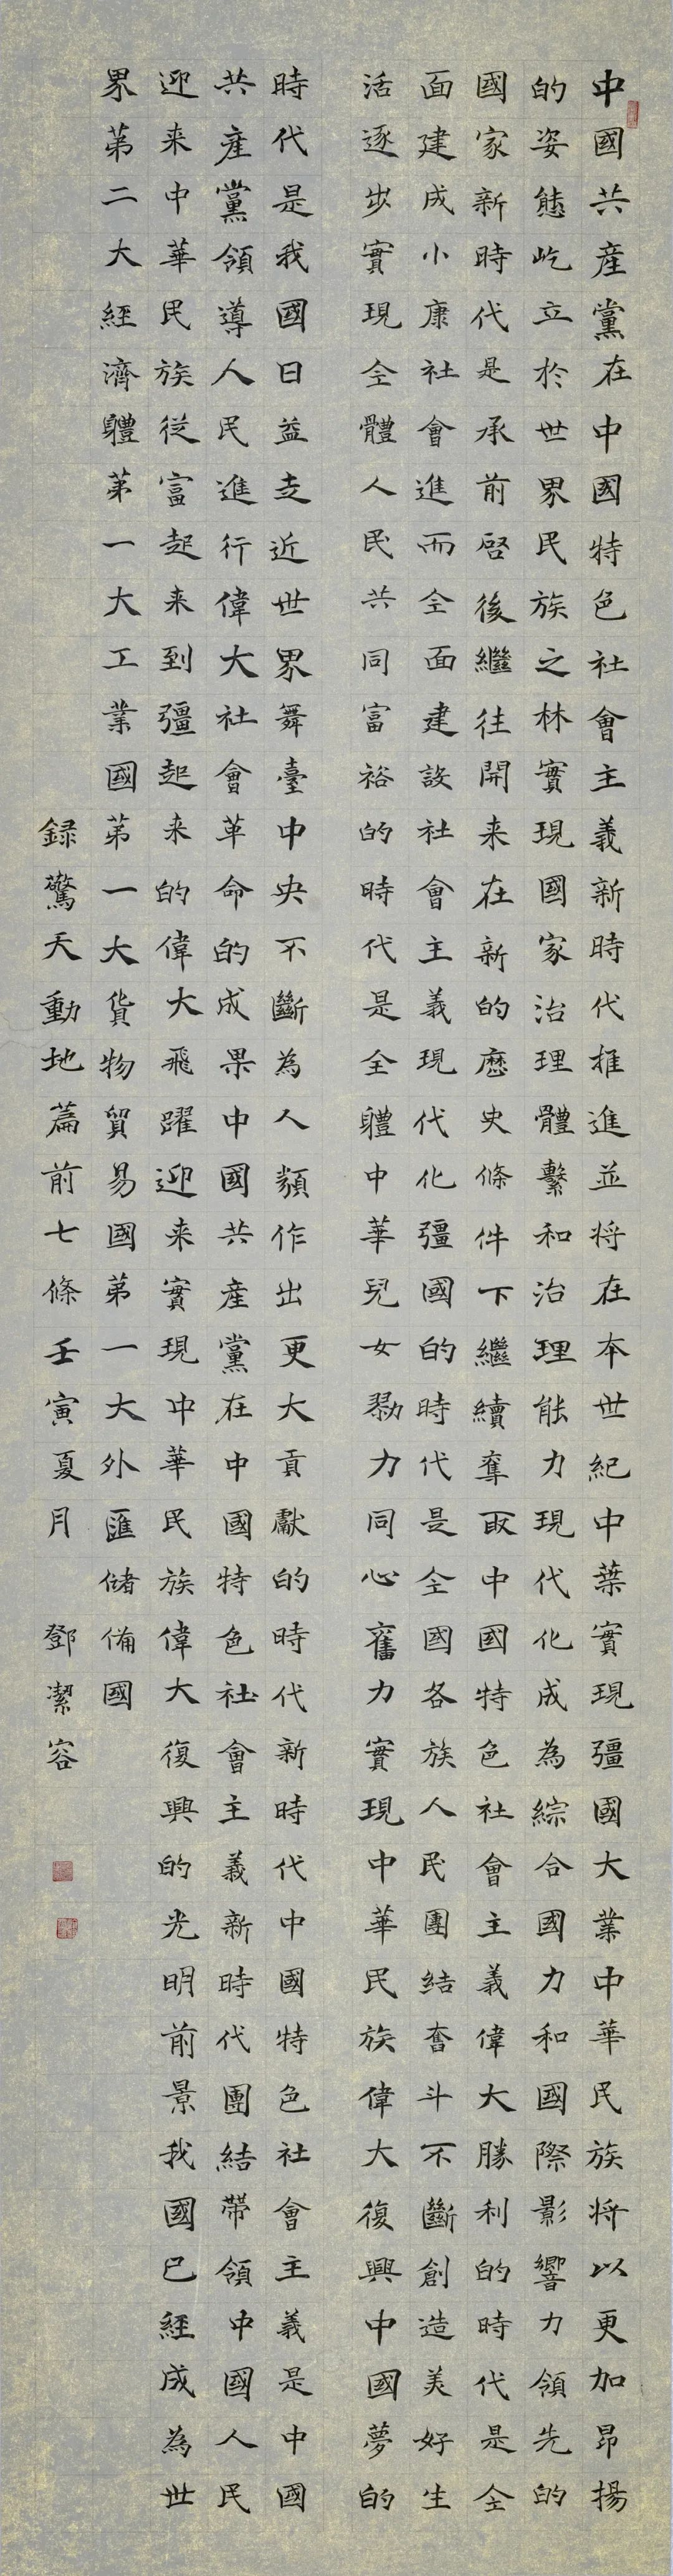 中國共産黨在中國特色社會主義新時代推進並将在本世紀中葉實現彊國大業中華民族将以更加昂揚
的姿態屹立於世界民族之林實現國家治理體繫和治理能力現代化成為綜合國力和國際影響力領先的
國家新時代是承前啓後繼往開来在新的歷史條件下繼續奪取中國特色社會主義偉大勝利的時代是全
面建成小康社會進而全面建設社會主義現代化彊國的時代是全國各族人民團結奮斗不斷創造美好生
活逐步實現全體人民共同富裕的時代是全軆中華兒女勠力同心奮力實現中華民族偉大復興中國夢的
時代是我國日益走近世界舞臺中央不斷為人類作出更大貢獻的時代新時代中國特色社會主義是中國
共產黨領導人民進行偉大社會革命的成果中國共產黨在中國特色社會主義新時代團結帶領中國人民
迎来中華民族從富起来到彊起来的偉大飛躍迎来實現中華民族偉大復興的光明前景我國已經成為世
界第二大經濟軆第一大工業國第一大貨物貿易國第一大外匯儲備國
録驚天動地篇前七條壬寅夏月 鄧潔容